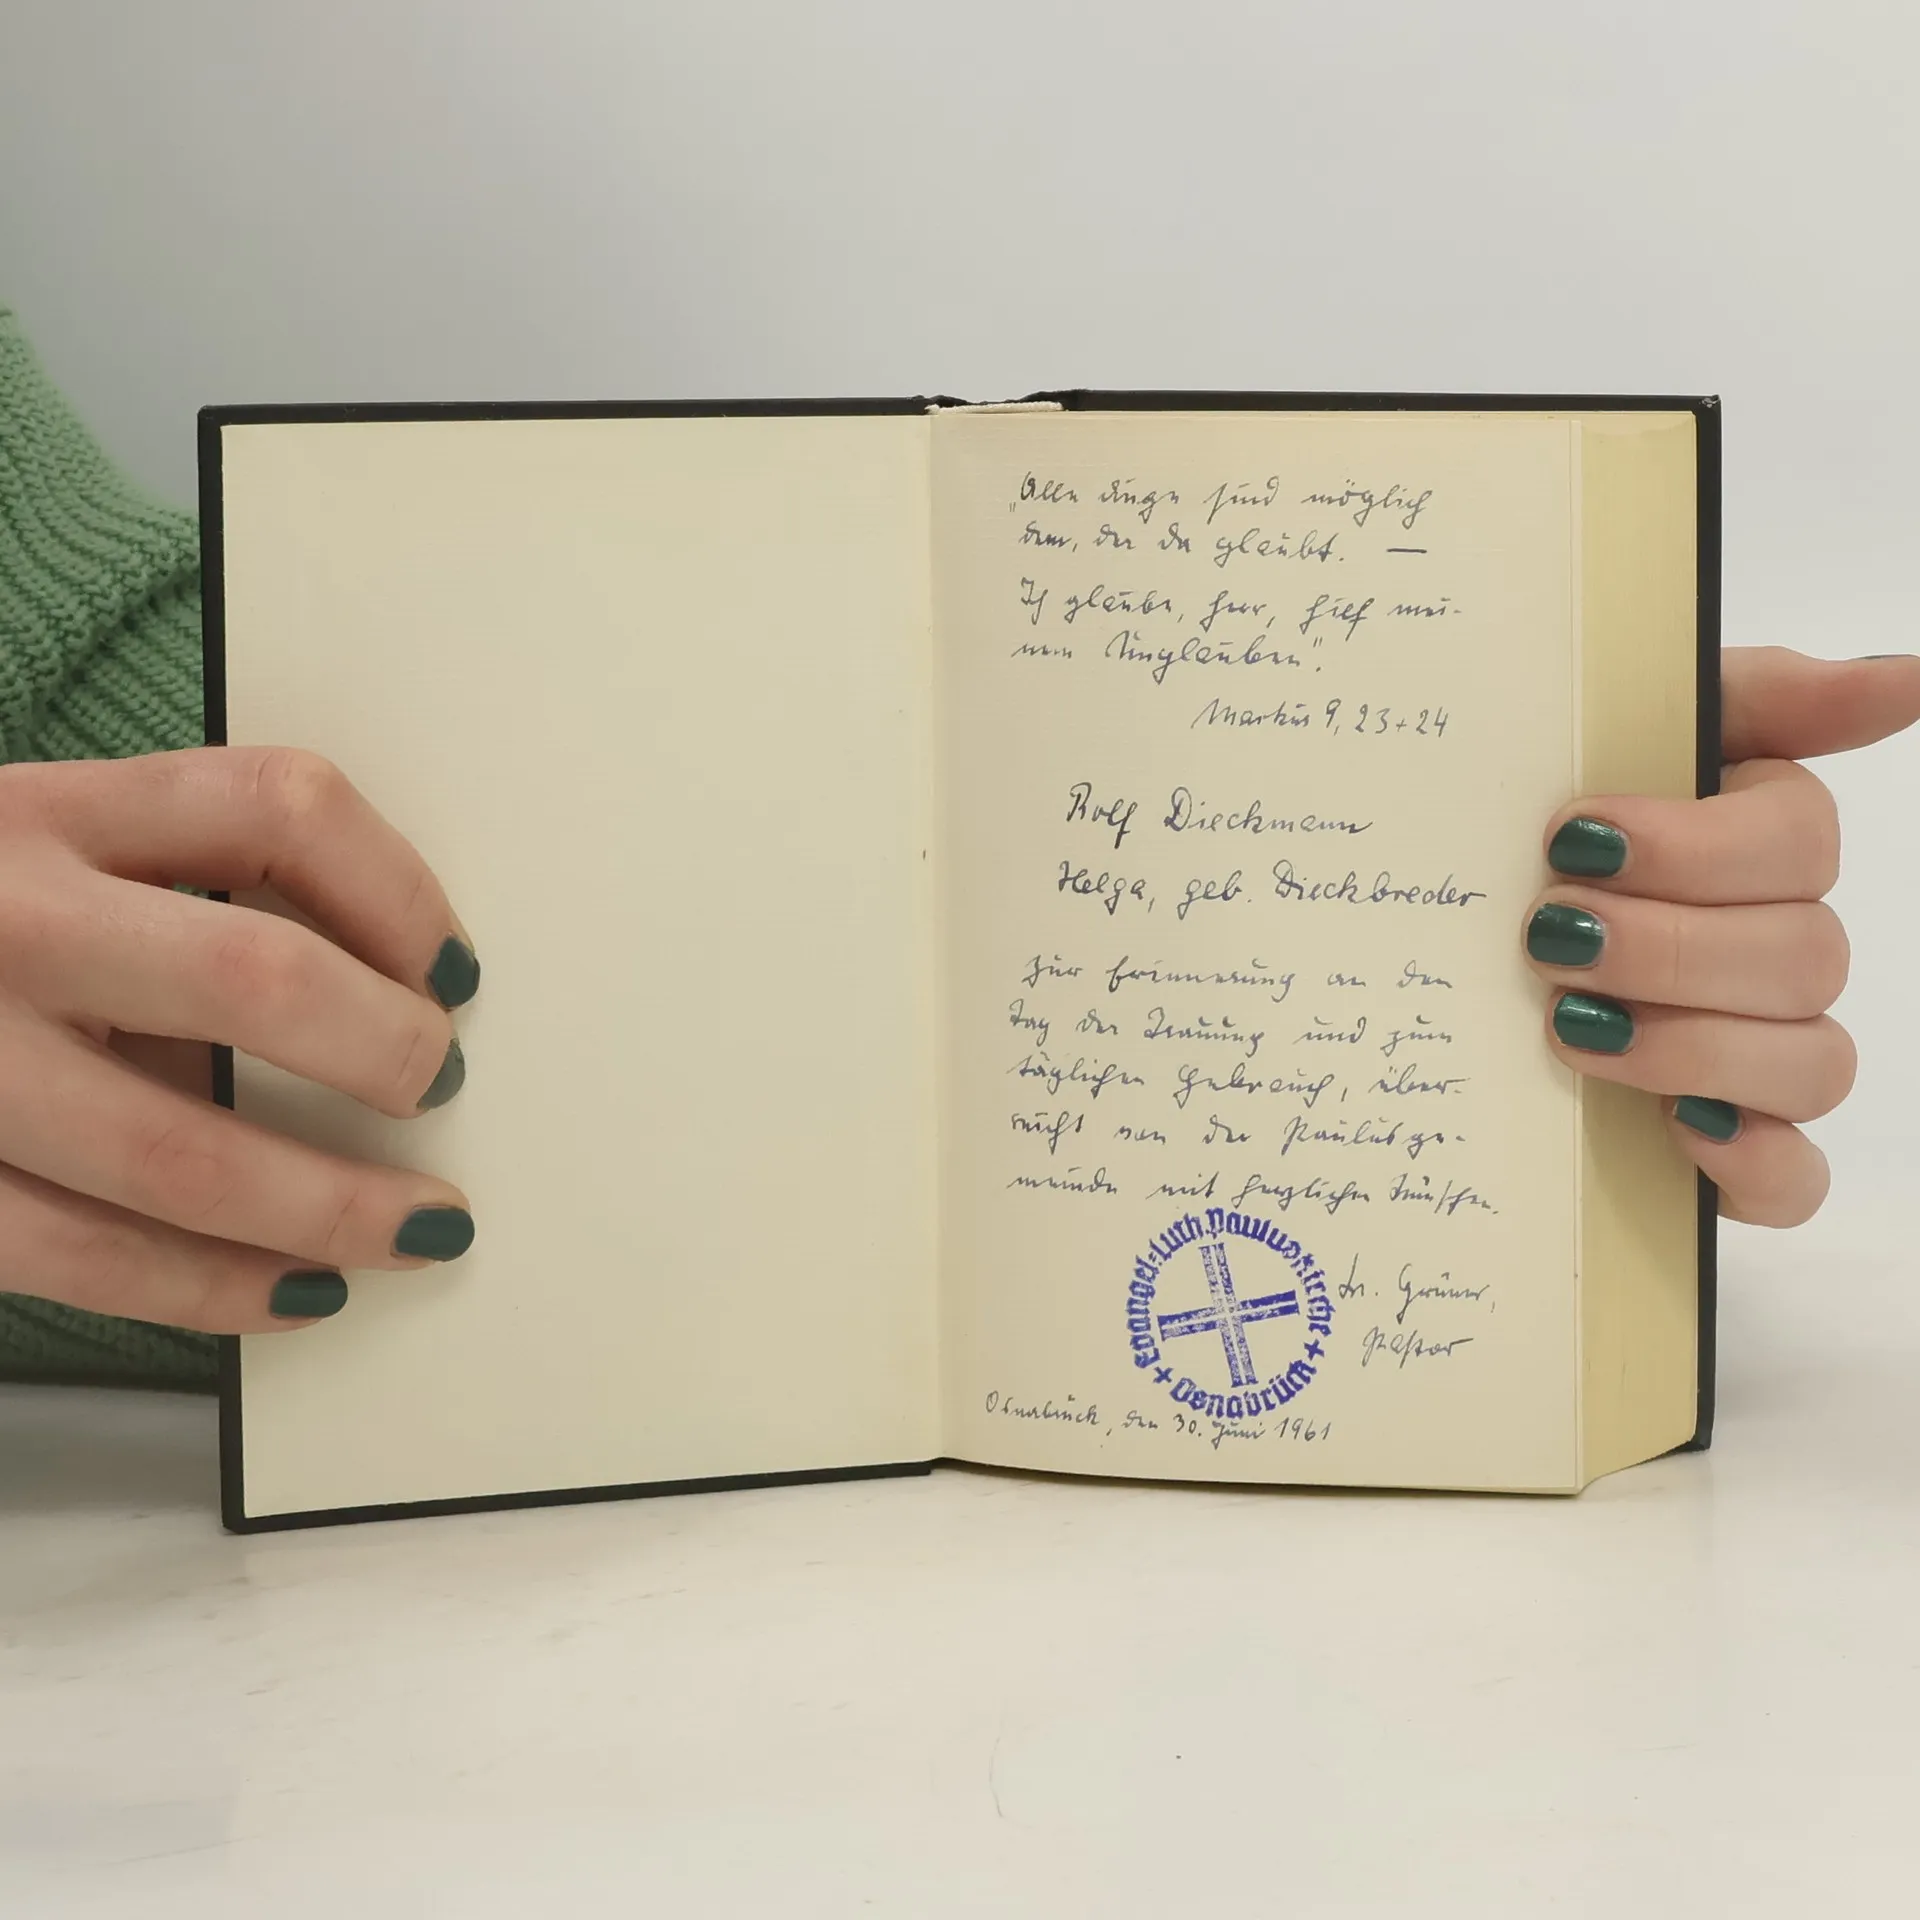 „Alle Dinge sind möglich
dem, der da glaubt. —
Ich glaube, Herr, hilf mei-
nem Unglauben".
Markus 9, 23+24
Rolf Dieckmann
Helga, geb. Dieckbreder
zur Erinnerung an den
Tag der Trauung und zum
täglichen Gebrauch, über-
reicht von der Paulusge-
meinde mit herzlichen Wünschen.
Evangel.-Luth. Pauluskirche + Osnabrück +
Grüner,
Pastor
Osnabrück, den 30. Juni 1961